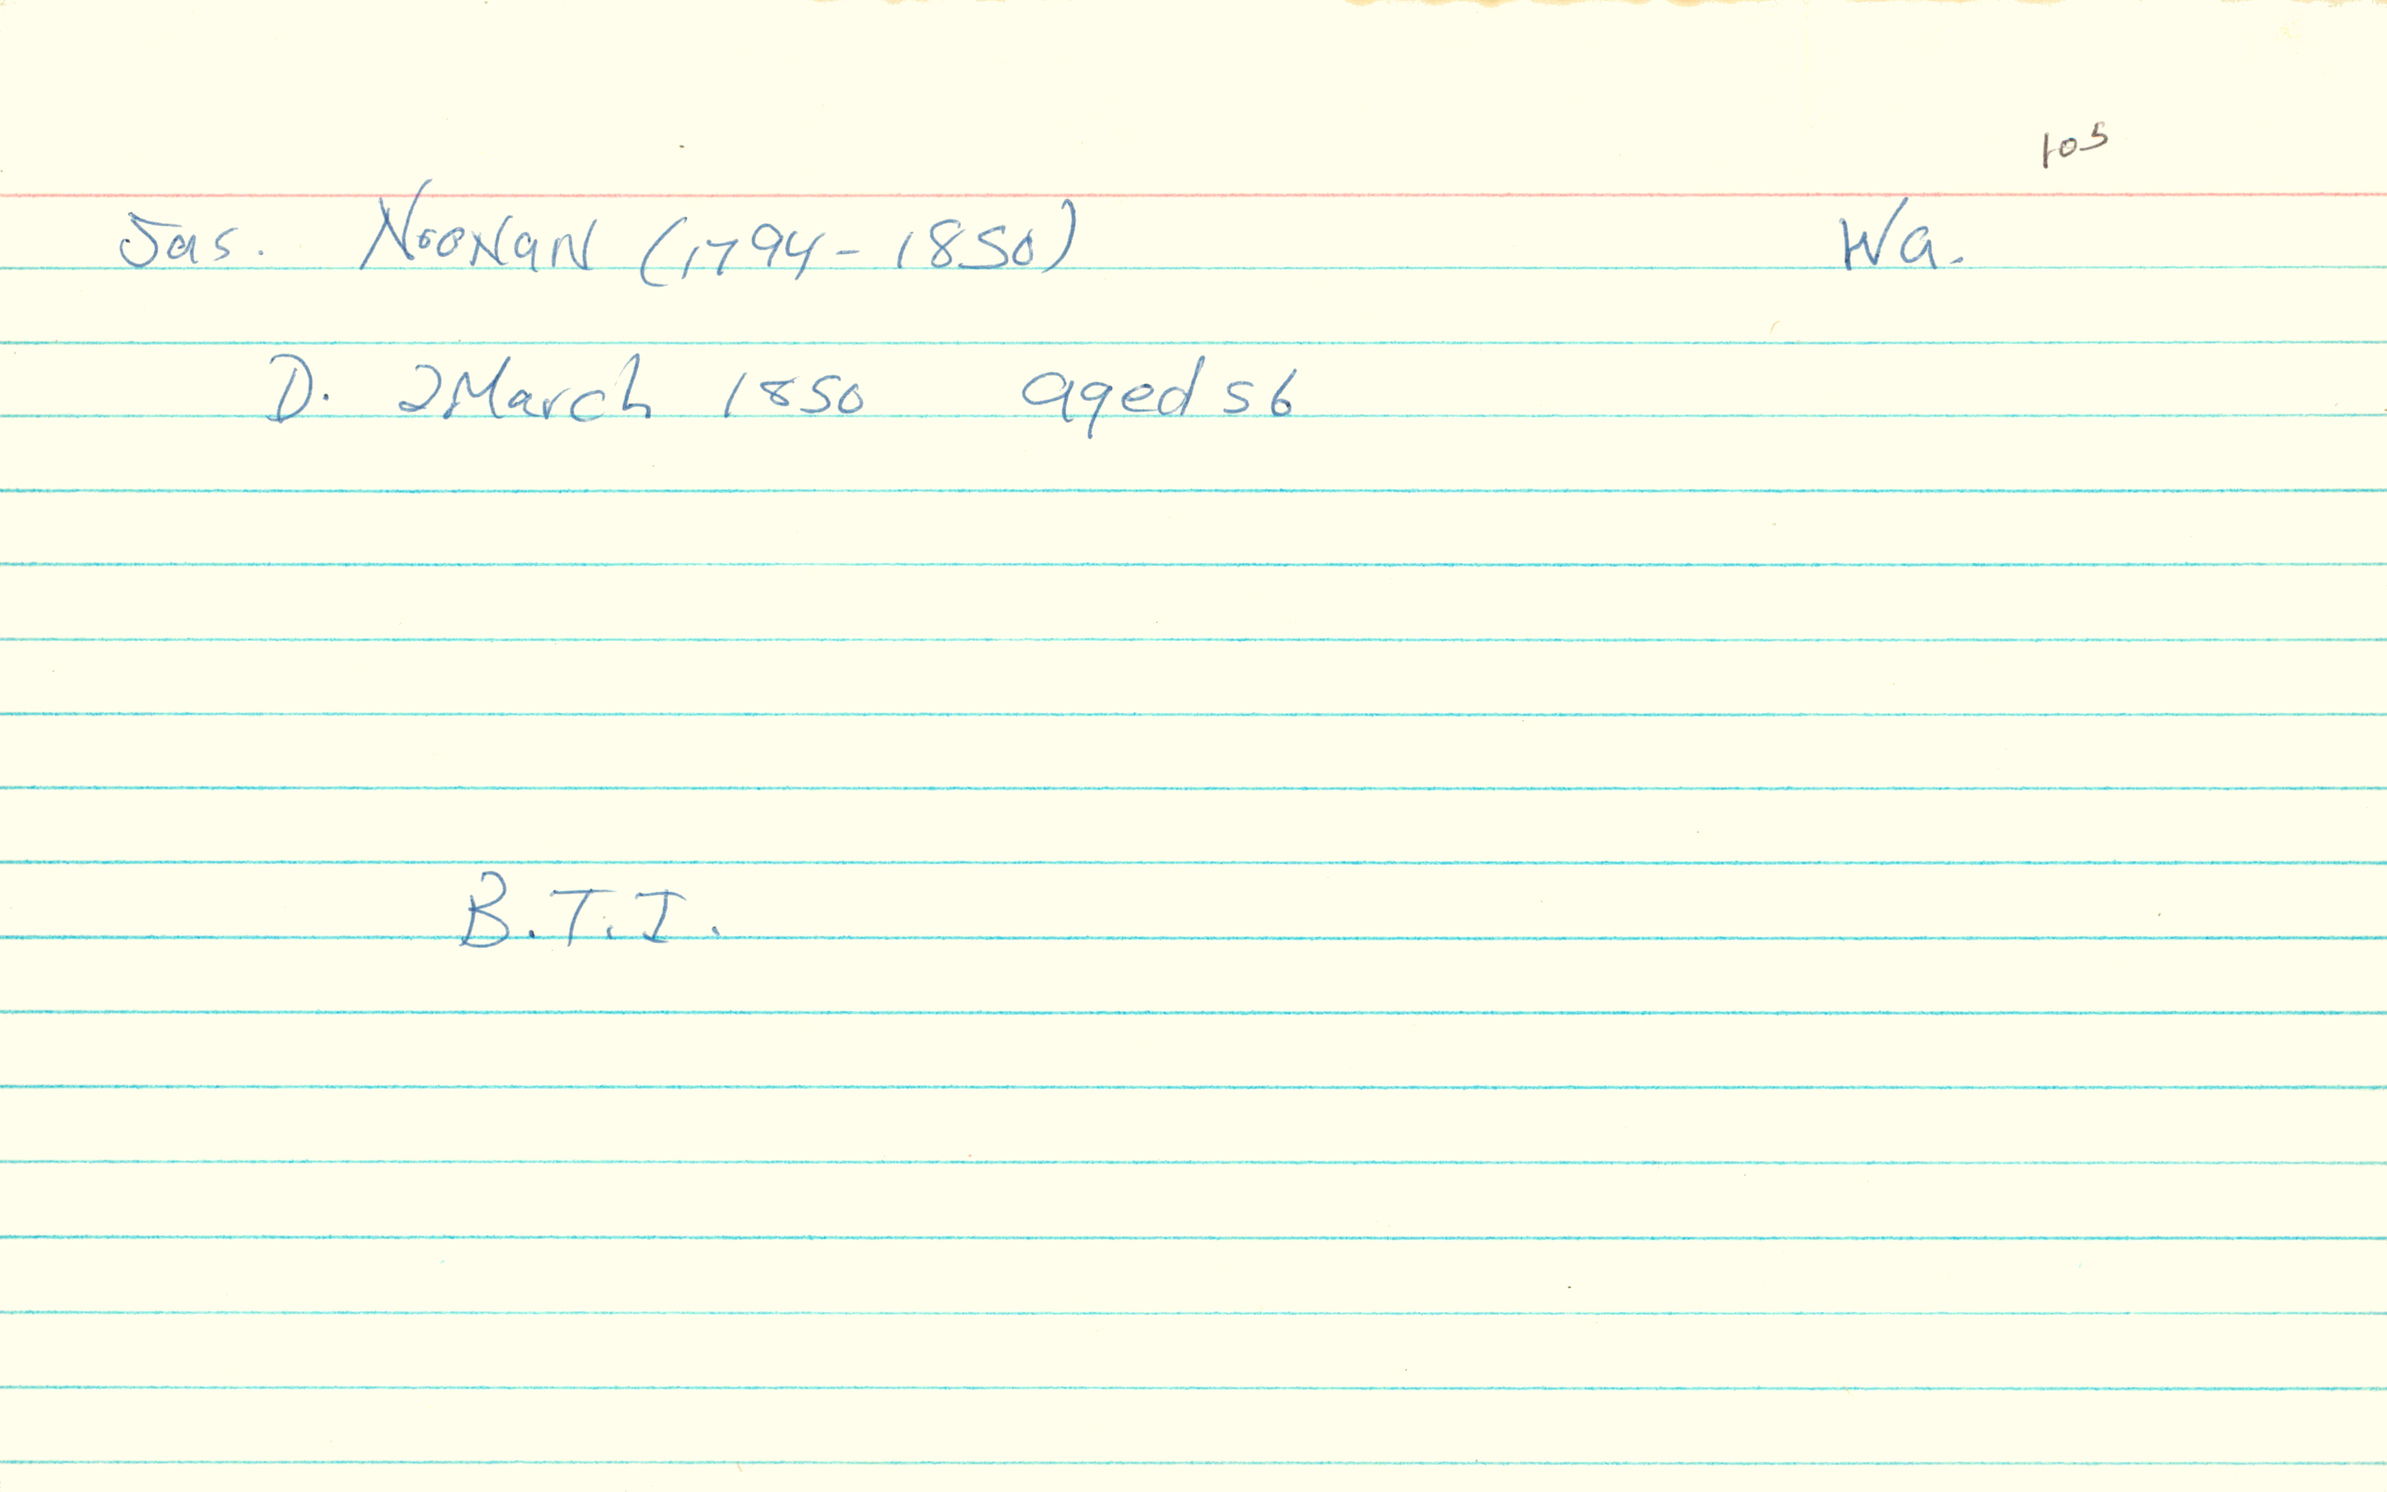 105
Jas. Noonan (1794-1850) Wa.
D. 2 March 1850 aged 56
B.T.I.